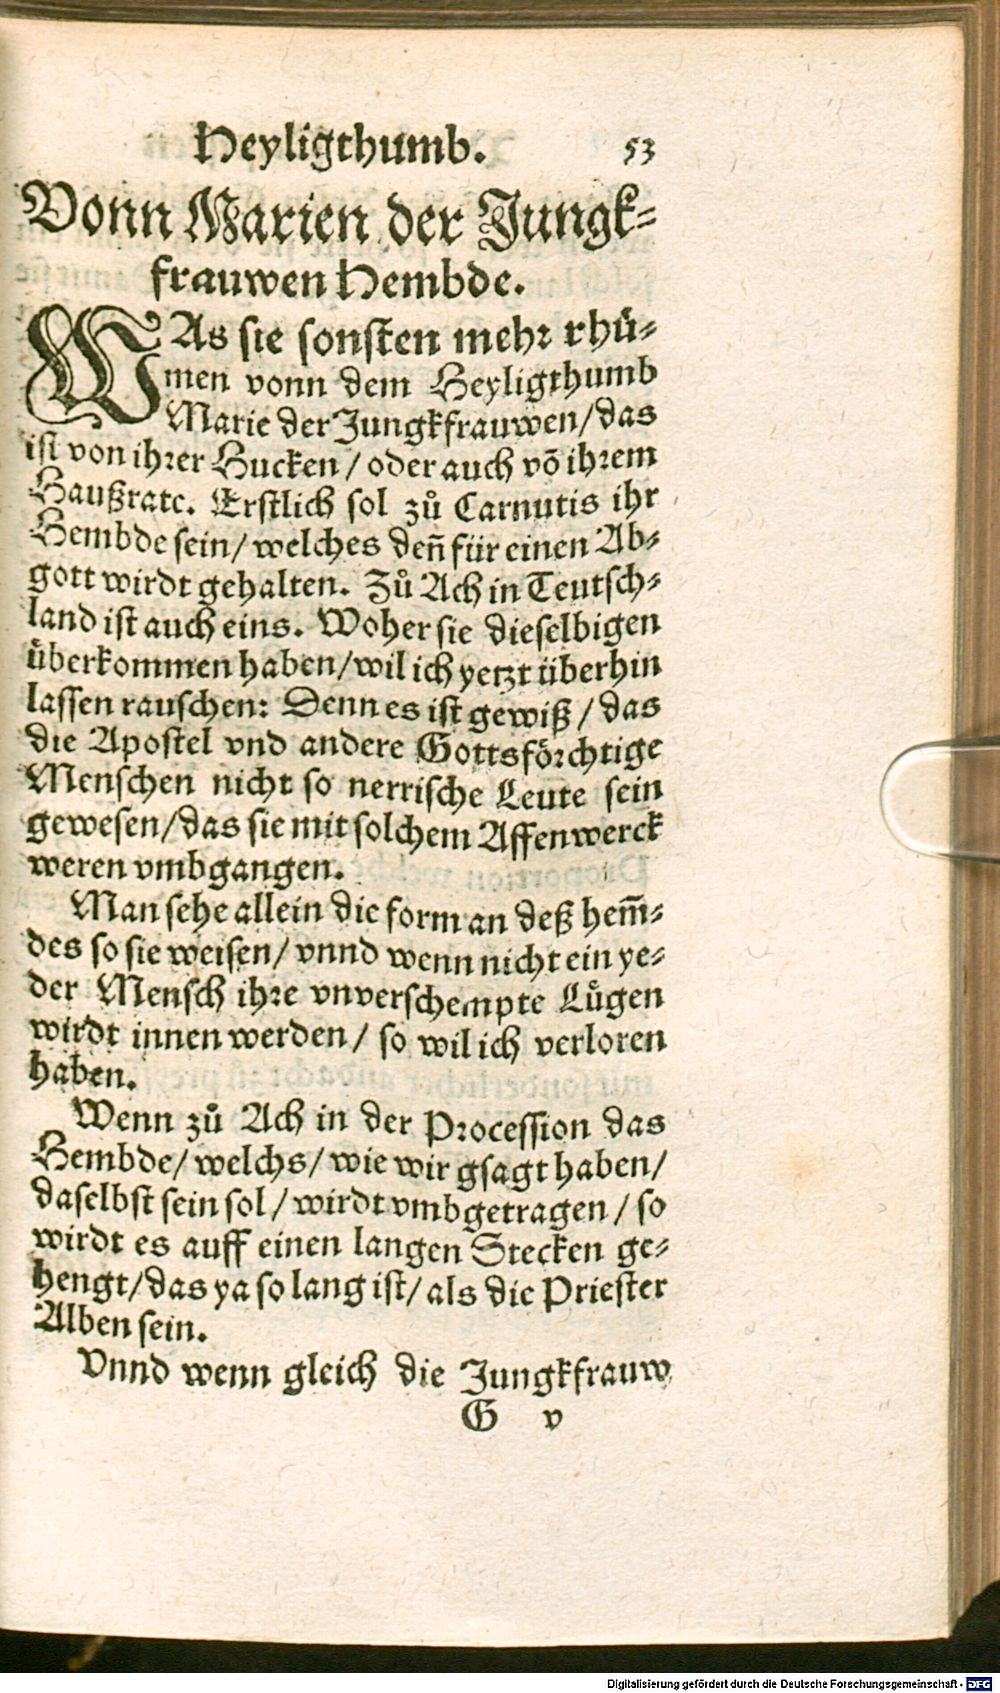 Heyligthumb. 53
Vonn Marien der Jungk-
frauwen Hembde.
WAs sie sonsten mehr rhů-
men vonn dem Heyligthumb
Marie der Jungkfrauwen/das
ist von ihrer Hucken / oder auch võ ihrem
Haußrate. Erstlich sol zů Carnutis ihr
Hembde sein/ welches deñ für einen Ab-
gott wirdt gehalten. Zů Ach in Teutsch-
land ist auch eins. Woher sie dieselbigen
überkommen haben/wil ich yetzt überhin
lassen rauschen: Denn es ist gewiß / das
die Apostel vnd andere Gottsförchtige
Menschen nicht so nerrische Leute sein
gewesen/das sie mit solchem Affenwerck
weren vmbgangen.
Man sehe allein die form an deß hem̃-
des so sie weisen/ vnnd wenn nicht ein ye-
der Mensch ihre vnverschempte Lügen
wirdt innen werden/ so wil ich verloren
haben.
Wenn zů Ach in der Procession das
Hembde/ welchs/ wie wir gsagt haben/
daselbst sein sol/ wirdt vmbgetragen / so
wirdt es auff einen langen Stecken ge-
hengt/das ya so lang ist/ als die Priester
Alben sein.
Vnnd wenn gleich die Jungkfrauw
G v
Digitalisierung gefördert durch die Deutsche Forschungsgemeinschaft - DFG